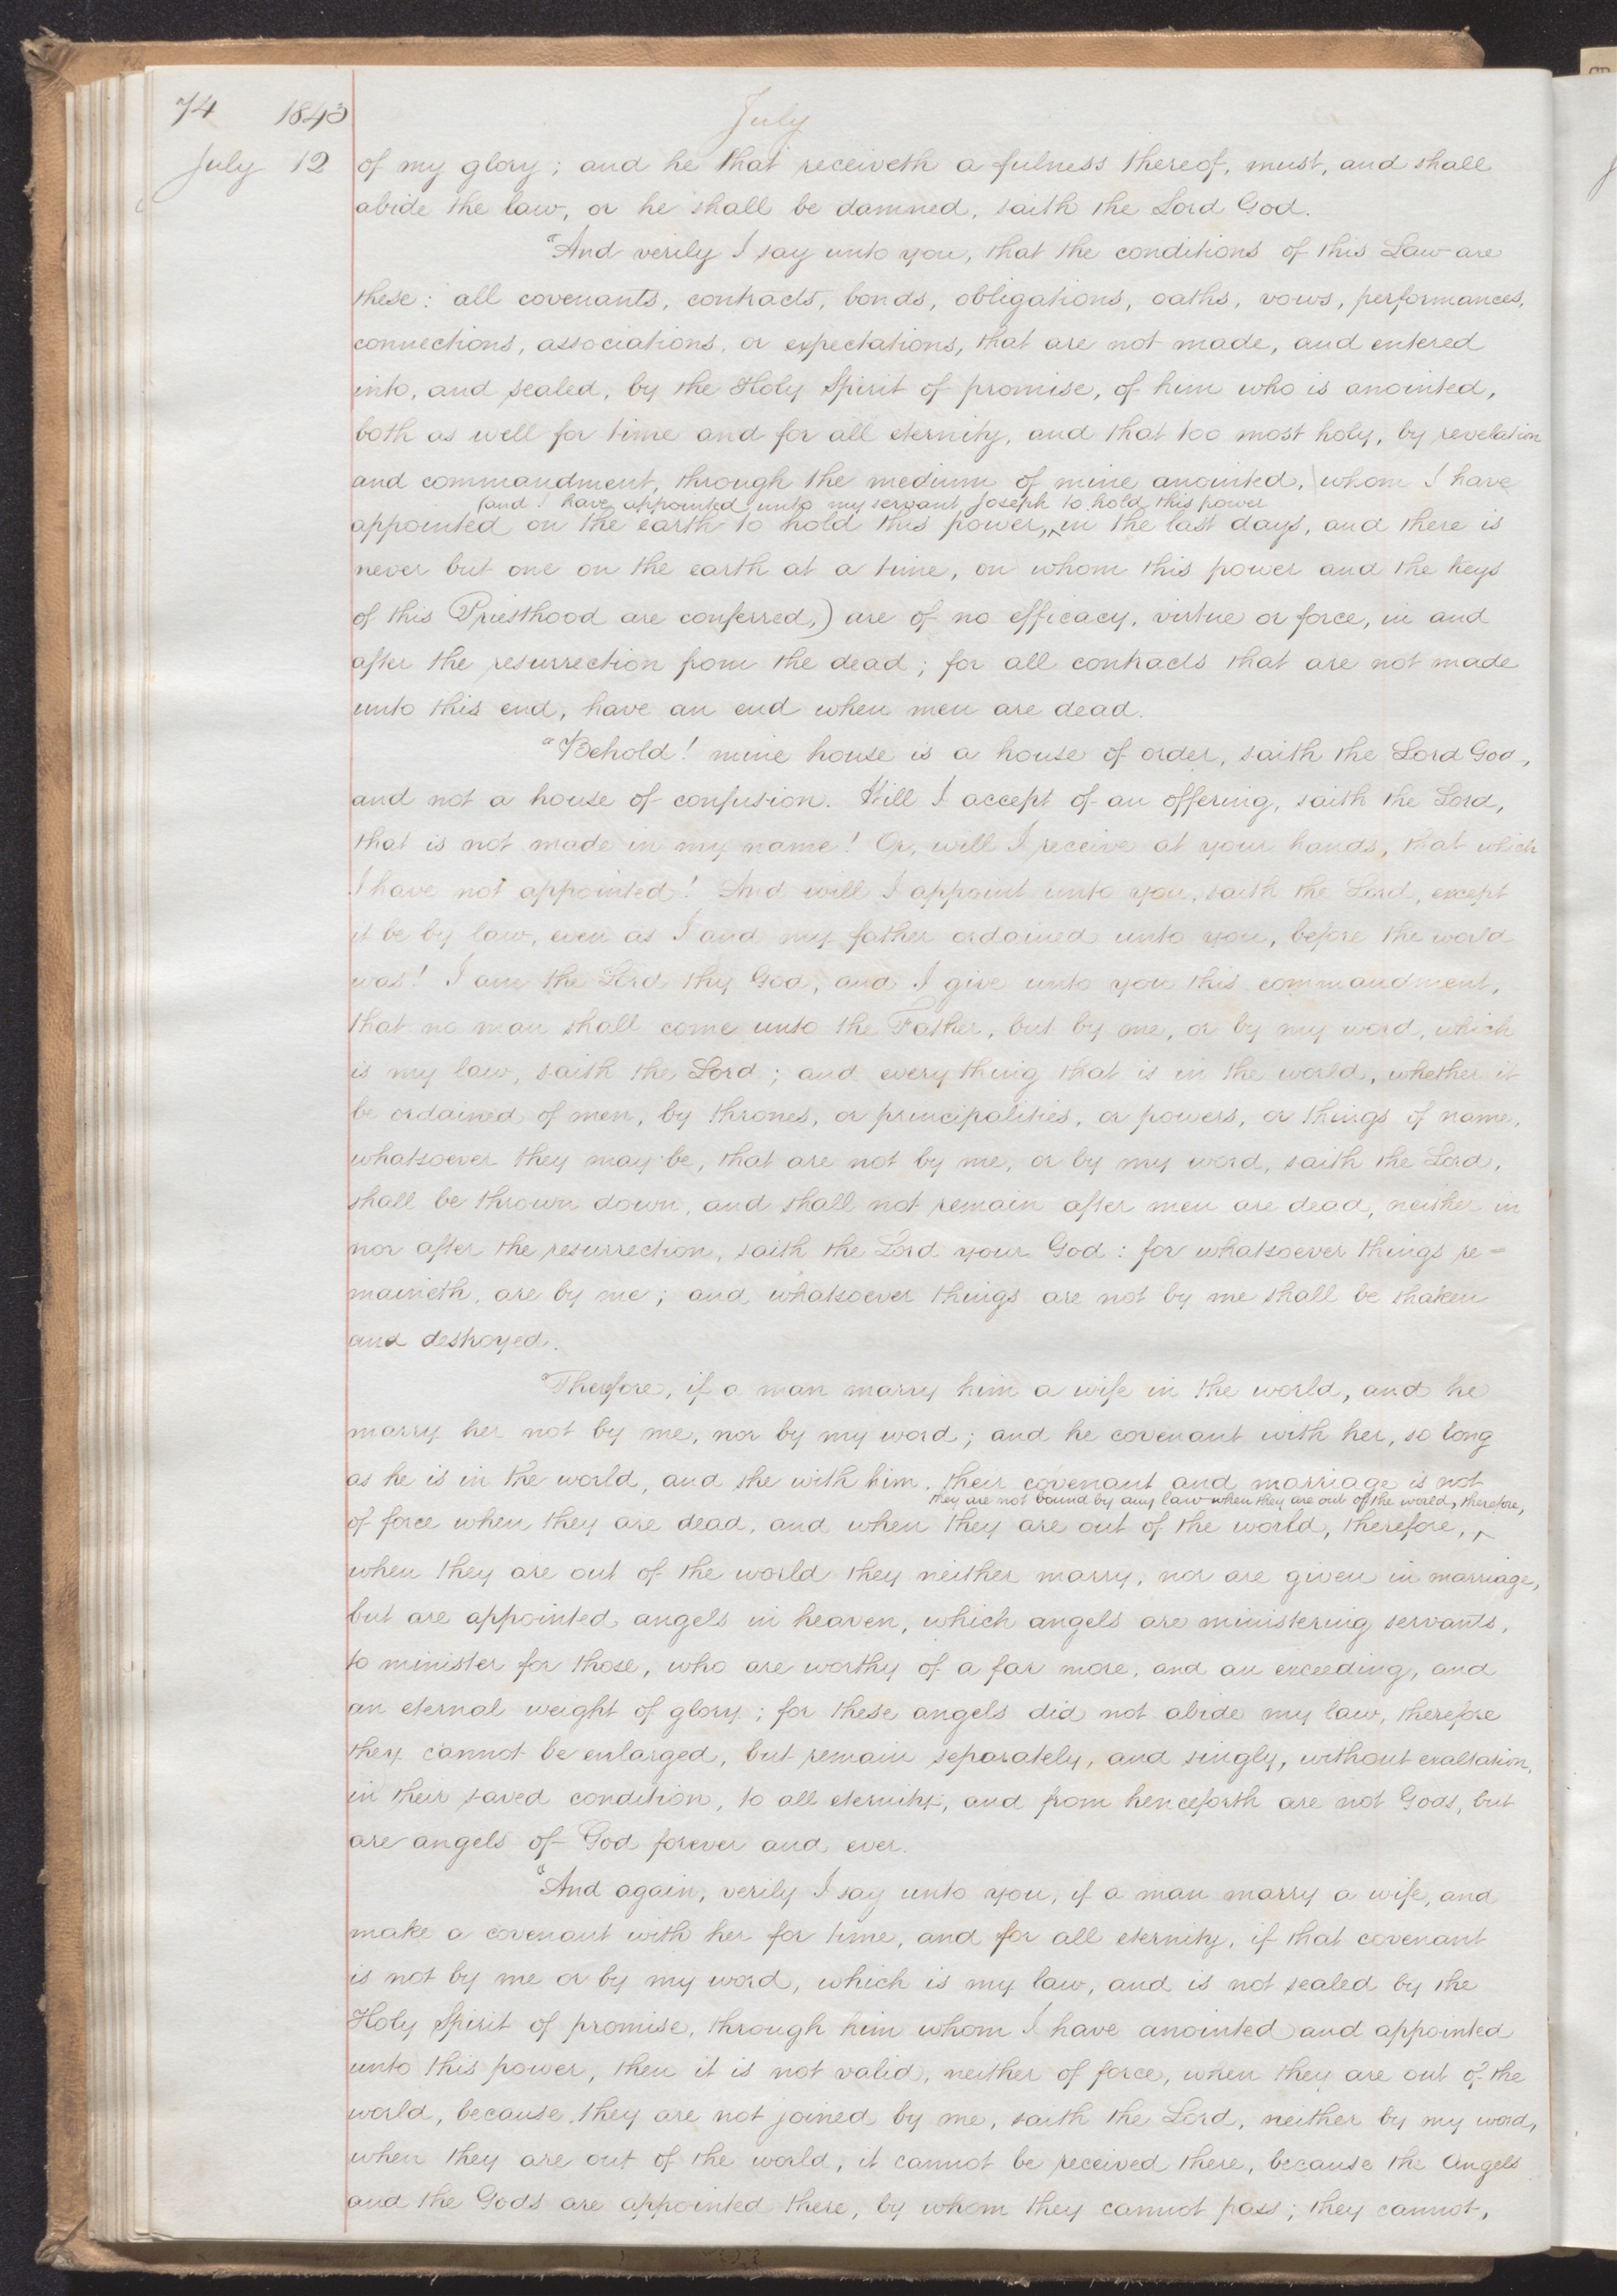 74 1843 July
July 12 of my glory; and he that receiveth a fulness thereof, must, and shall
abide the law, or he shall be damned, saith the Lord God.
"And verily I say unto you, that the conditions of this Law are
these: all covenants, contracts, bonds, obligations, oaths, vows, performances,
connections, associations, or expectations, that are not made, and entered
into, and sealed, by the Holy Spirit of promise, of him who is anointed,
both as well for time and for all eternity, and that too most holy, by revelation
and commandment, through the medium of mine anointed, whom I have
(and I have appointed unto my servant Joseph to hold this power
appointed on the earth to hold this power,^ in the last days, and there is
never but one on the earth at a time, on whom this power and the keys
of this Priesthood are conferred,) are of no efficacy, virtue or force, in and
after the resurrection from the dead; for all contracts that are not made
unto this end, have an end when men are dead.
"Behold! mine house is a house of order, saith the Lord God,
and not a house of confusion. Will I accept of an offering, saith the Lord,
that is not made in my name! Or, will I receive at your hands, that which
I have not appointed! And will I appoint unto you, saith the Lord, except
it be by law, even as I and my father ordained unto you, before the world
was! I am the Lord thy God, and I give unto you this commandment,
that no man shall come unto the Father, but by me, or by my word, which
is my law, saith the Lord; and every thing that is in the world, whether it
be ordained of men, by thrones, or principalities, or powers, or things of name,
whatsoever they may be, that are not by me, or by my word, saith the Lord,
shall be thrown down, and shall not remain after men are dead, neither in
nor after the resurrection, saith the Lord your God: for whatsoever things re=
maineth, are by me; and whatsoever things are not by me shall be shaken
and destroyed.
"Therefore, if a man marry him a wife in the world, and he
marry her not by me, nor by my word; and he covenant with her, so long
as he is in the world, and she with him, their covenant and marriage is not
they are not bound by any law when they are out of the world, therefore,
of force when they are dead, and when they are out of the world, therefore, ^
when they are out of the world they neither marry, nor are given in marriage,
but are appointed angels in heaven, which angels are ministering servants,
to minister for those, who are worthy of a far more, and an exceeding, and
an eternal weight of glory; for these angels did not abide my law, therefore
they cannot be enlarged, but remain separately, and singly, without exaltation,
in their saved condition, to all eternity, and from henceforth are not Gods, but
are angels of God forever and ever.
"And again, verily I say unto you, if a man marry a wife, and
make a covenant with her for time, and for all eternity, if that covenant
is not by me or by my word, which is my law, and is not sealed by the
Holy Spirit of promise, through him whom I have anointed and appointed
unto this power, then it is not valid, neither of force, when they are out of the
world, because they are not joined by me, saith the Lord, neither by my word,
when they are out of the world, it cannot be received there, because the Angels
and the Gods are appointed there, by whom they cannot pass; they cannot,